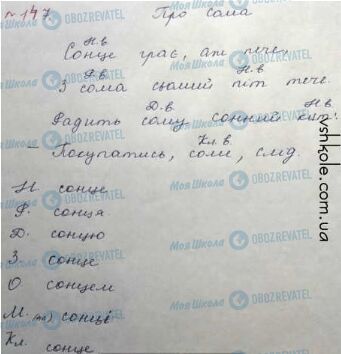 № 147. Про сома
Н.в
Сонце грає, аж пече,
Р.в Н.в
З сома сьомий піт тече.
Д.в Н.в
Радить сому сонний кіт:
Кл.в
– Покупатись, соме, слід.
Н. сонце
Р. сонця
Д. сонцю
З сонце
О сонцем
М. (на) сонці
Кл. сонце
Моя Школа OBOZREVATEL
vshkole.com.ua